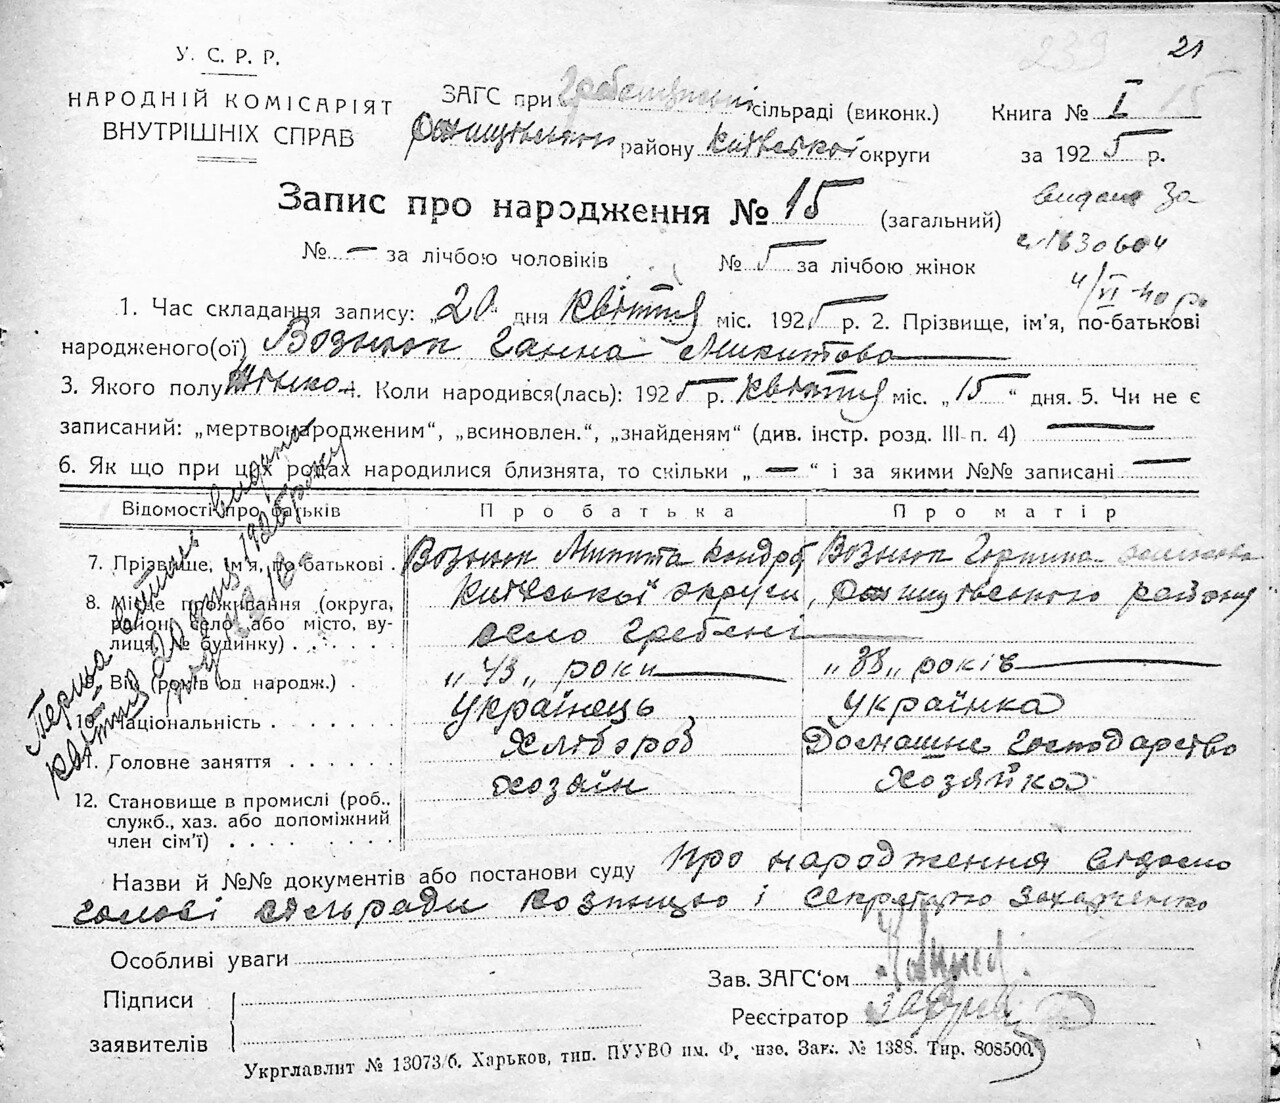 21
239
У. С. Р. Р.
НАРОДНІЙ КОМІСАРІЯТ
ВНУТРІШНІХ СПРАВ
ЗАГС при сільраді (виконк.)
району Київської округи
Книга № I 15
за 1925 р.
Запис про народження № 15 (загальний)
видано За
№ 1630604
4/VI-40 р.
№ — за лічбою чоловіків № 5 за лічбою жінок
1. Час складання запису: „20“ дня квітня міс. 1925 р. 2. Прізвище, ім'я, по-батькові
народженого(ої) Вознюк Ганна Микитова
3. Якого полу жіноко 4. Коли народився(лась): 1925 р. квітня міс. „15“ дня. 5. Чи не є
записаний: „мертвонародженим“, „всиновлен.“, „знайденям“ (див. інстр. розд. III п. 4) —
6. Як що при цих родах народилися близнята, то скільки „—“ і за якими №№ записані —
Відомості про батьків Про батька Про матір
7. Прізвище, ім'я, по-батькові . Вознюк Микита Кондрат Вознюк Горпина
8. Місце проживання (округа, район, село або місто, вулиця, № будинку) . . . . . . Київської округи, району
село Гребені
9. Вік (років од народж.) . „43„ роки „38„ років
10. Національність . . . . . Українець Українка
11. Головне заняття . . . . . Хлібороб Домашнє Господарство
12. Становище в промислі (роб., служб., хаз. або допоміжний член сім'ї) . . . . . . хозаїн хозяйка
Перша видана
квітня 20 дня 1925 року
Назви й №№ документів або постанови суду Про народження відомо
голові сільради Кознюцю і секретарю Захарченко
Особливі уваги
Зав. ЗАГС'ом
Підписи
заявителів
Реєстратор
Укрглавлит № 13073/б. Харьков, тип. ПУУВО им. Ф. нзе. Зак. № 1388. Тир. 808500.